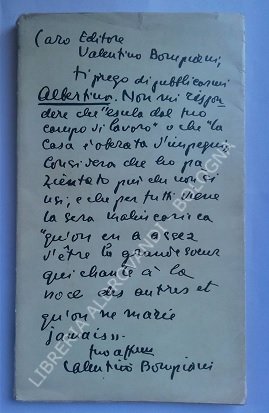 Caro Editore
Valentino Bompiani,
ti prego di pubblicarmi
Albertina. Non mi rispon
dere che "esula dal tuo
campo di lavoro" e che "la
casa è oberata d'impegni".
Considera che ho pa
zientato più che non si
usi; e che per tutti viene
la sera malinconica
"qu'on en a assez
d'être la grande soeur
qui chante à la
noce des autres et
qu'on ne marie
jamais".
tuo affmo
Valentino Bompiani
LIBRERIA ALBERGHINI - BOLOGNA